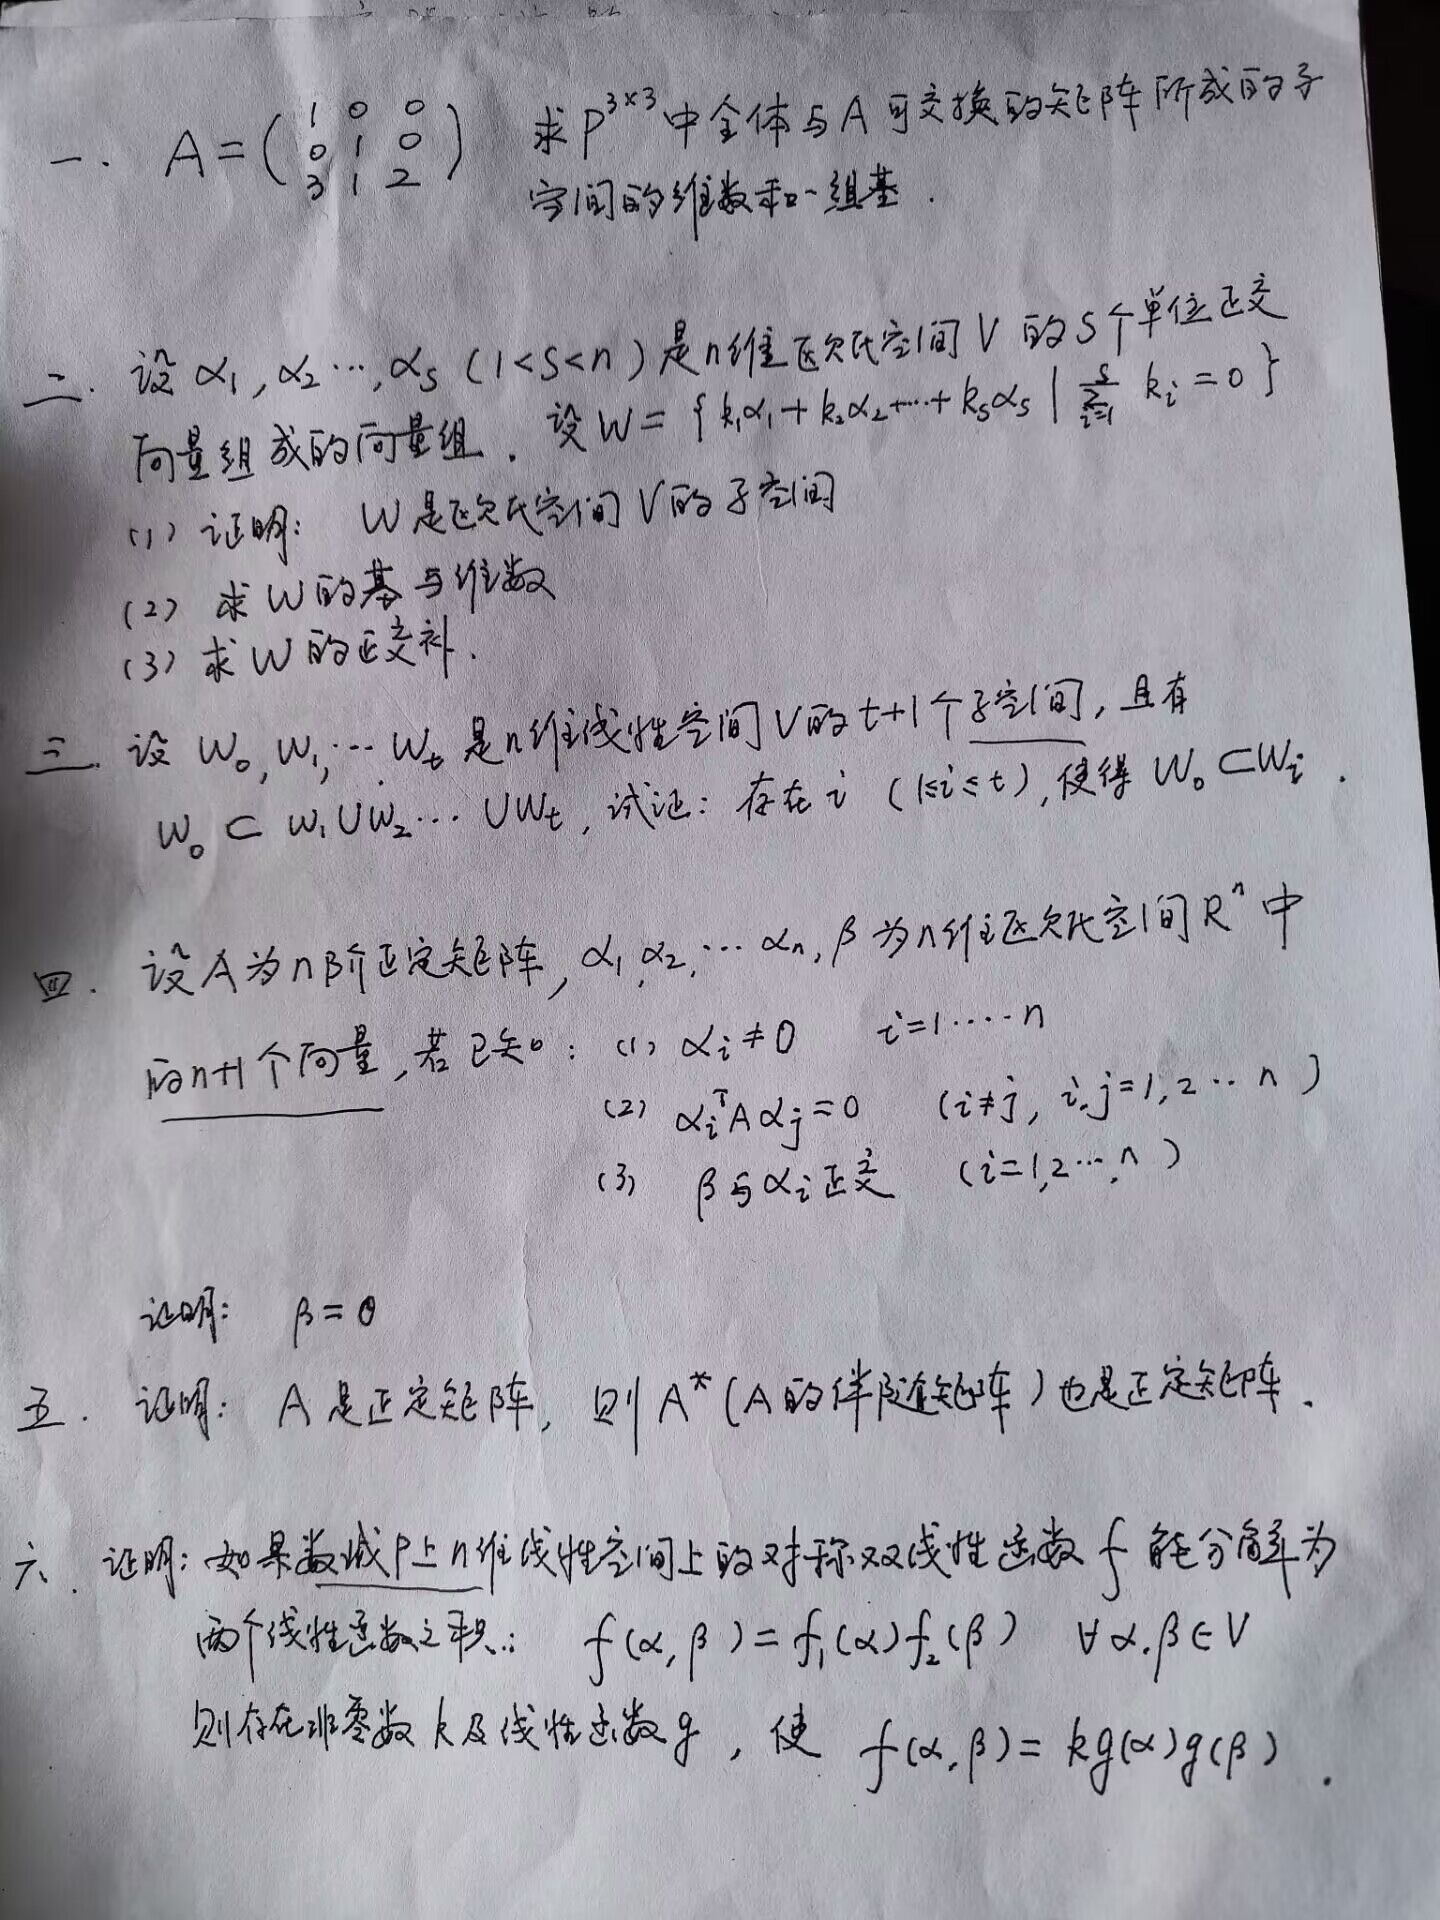 一. A=(1 0 0 0 1 0 3 1 2) 求P^{3×3}中全体与A可交换的矩阵所成的子
空间的维数和一组基.
二. 设α₁,α₂…,αs (1<s<n)是n维欧氏空间V的s个单位正交
向量组成的向量组. 设W={k₁α₁+k₂α₂+…+ksαs | ∑_{i=1}^{s} ki=0}
(1) 证明: W是欧氏空间V的子空间
(2) 求W的基与维数
(3) 求W的正交补.
三. 设W₀,W₁,…Wt是n维线性空间V的t+1个子空间,且有
W₀⊂W₁∪W₂…∪Wt,试证:存在i (1≤i≤t),使得W₀⊂Wi.
四. 设A为n阶正定矩阵,α₁,α₂,…αn,β为n维欧氏空间Rⁿ中
的n+1个向量,若已知: (1) αi≠0 i=1‥‥n
(2) αi^T A αj=0 (i≠j, i.j=1,2‥n)
(3) β与αi正交 (i=1,2…,n)
证明: β=0
五. 证明: A是正定矩阵, 则A*(A的伴随矩阵)也是正定矩阵.
六. 证明:如果数域P上n维线性空间上的对称双线性函数f能分解为
两个线性函数之积: f(α,β)=f₁(α)f₂(β) ∀α.β∈V
则存在非零数k及线性函数g, 使 f(α,β)=kg(α)g(β).